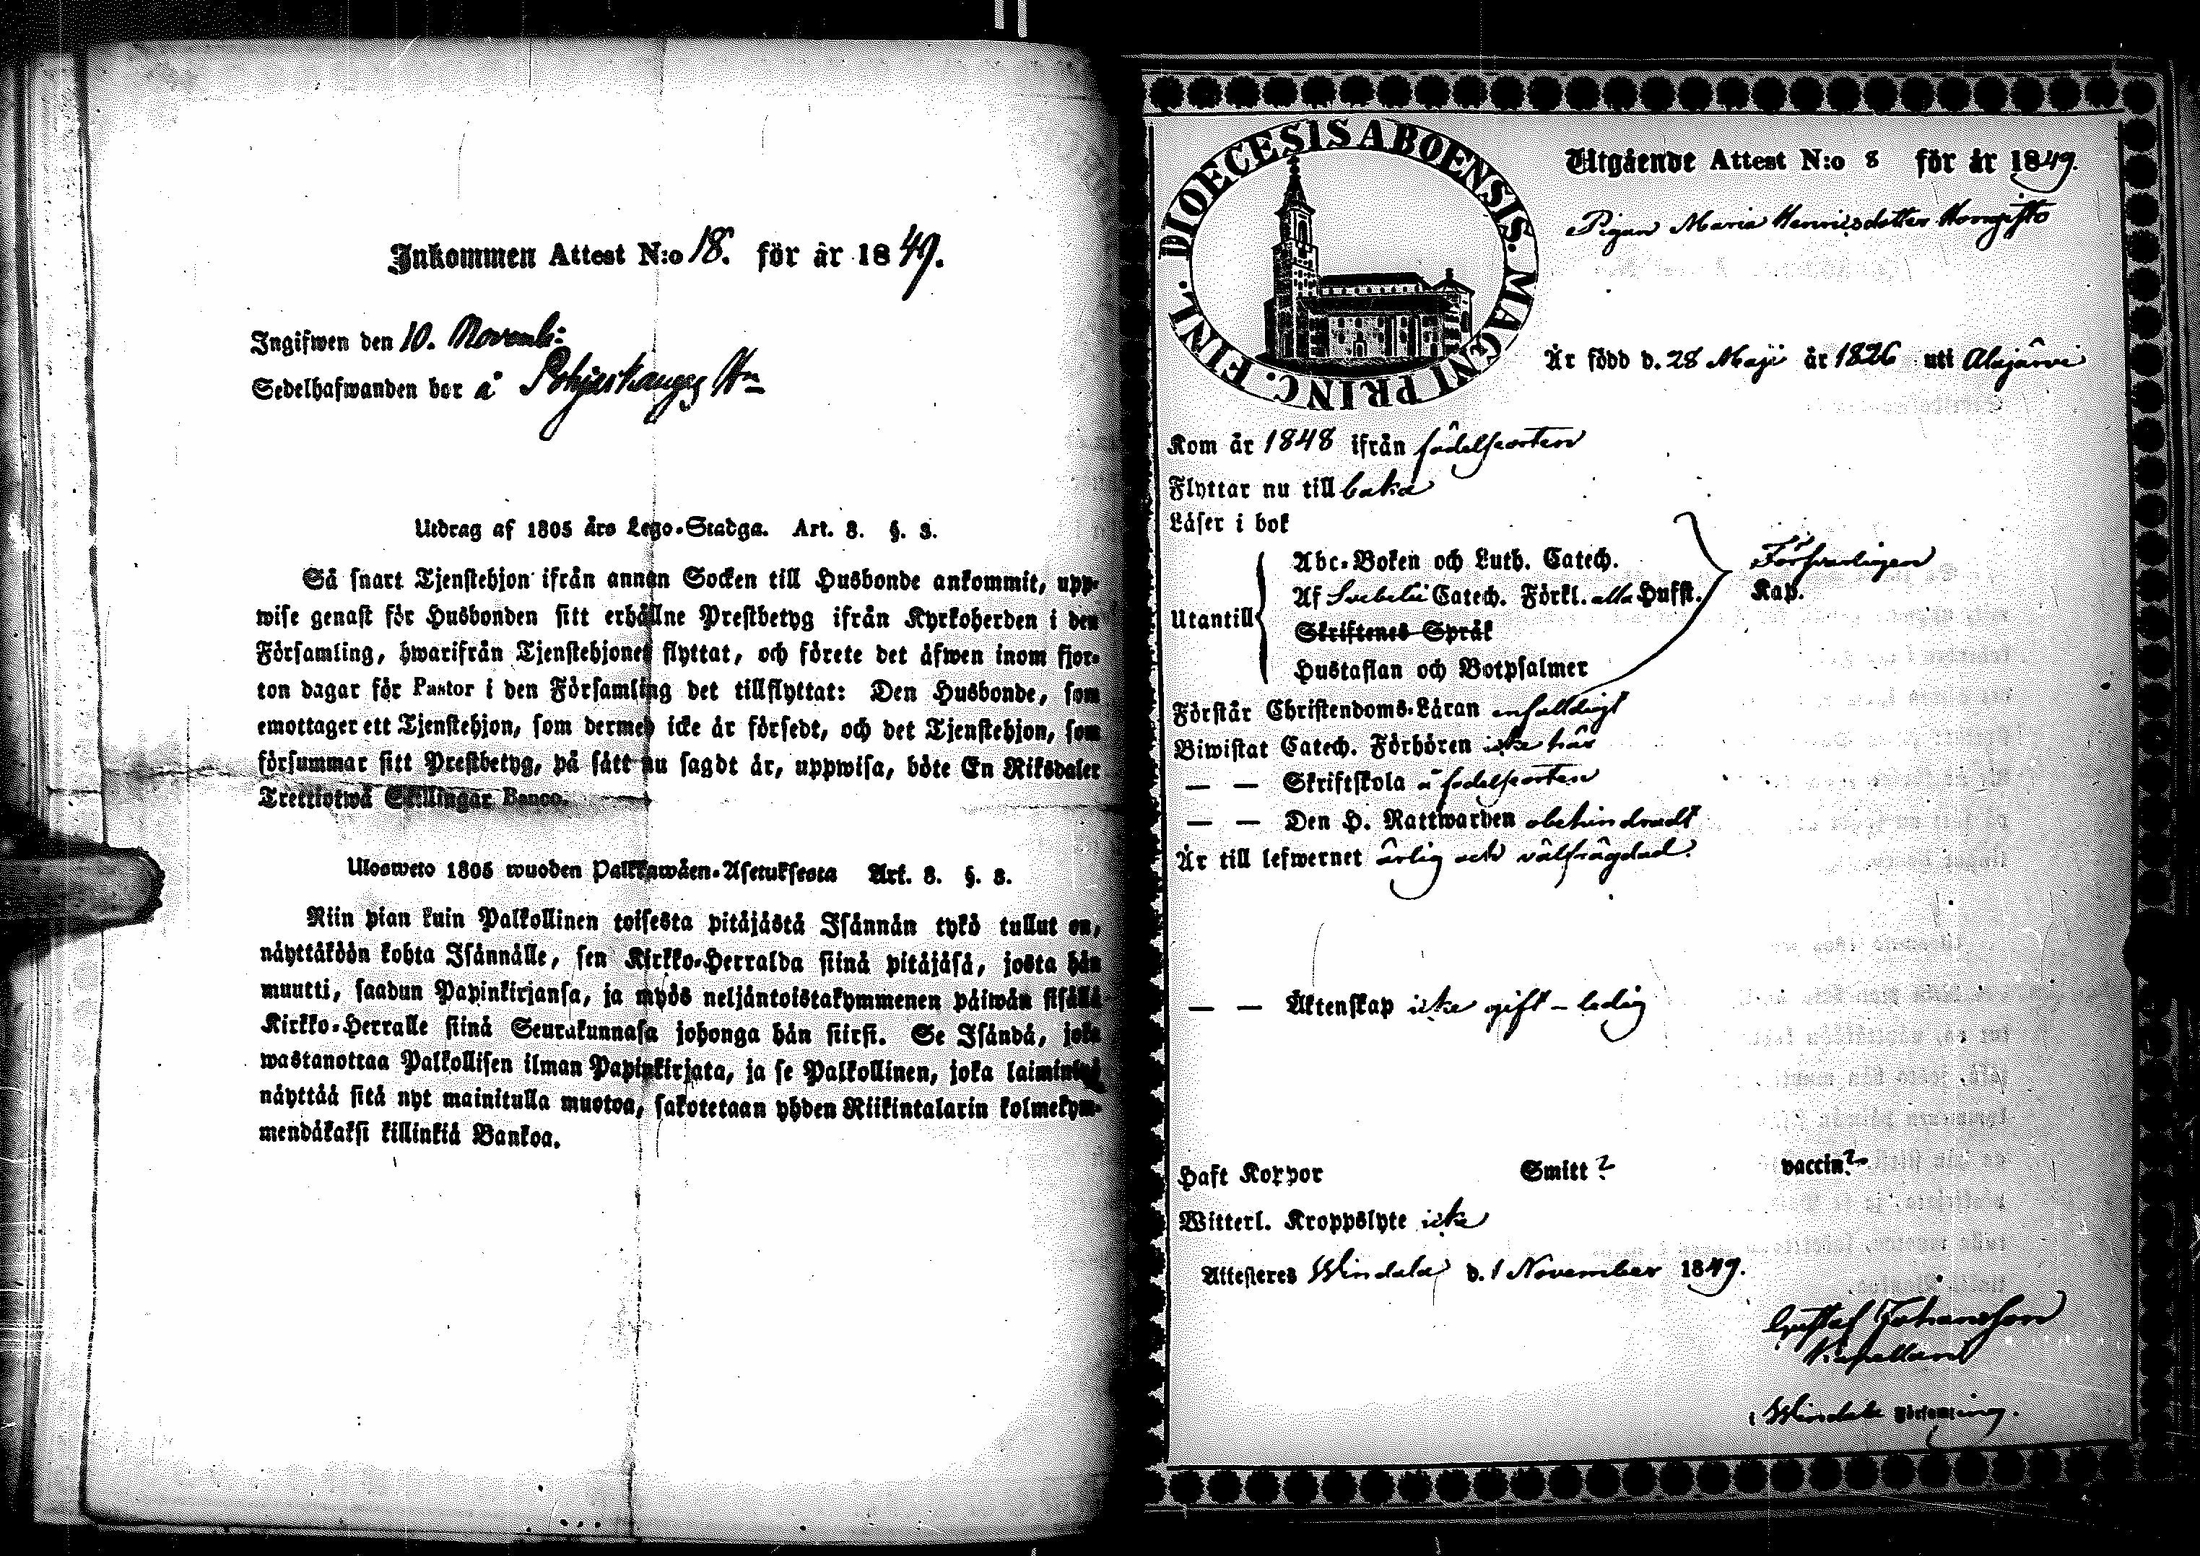 Inkommen Attest N:o 18. för år 1849.
Ingifwen den 10. Novemb:
Sedelhafwanden bor å Pohjaskangas
Utdrag af 1805 års Lego-Stadga. Art. 8. §. 3.
Så snart Tjenstehjon ifrån annan Socken till Husbonde ankommit, upp-
wise genast för Husbonden sitt erhållne Prestbetyg ifrån Kyrkoherden i den
Församling, hwarifrån Tjenstehjonet flyttat, och förete det äfwen inom fjor-
ton dagar för Pastor i den Församling det tillflyttat: Den Husbonde, som
emottager ett Tjenstehjon, som dermed icke är försedt, och det Tjenstehjon, som
försummar sitt Prestbetyg, på sätt nu sagdt är, uppwisa, böte En Riksdaler
Trettiotwå Skillingar Banco.
Ulosweto 1805 wuoden Palkkawäen-Asetuksesta Art. 8. §. 3.
Niin pian kuin Palkollinen toisesta pitäjästä Isännän tykö tullut on,
näyttäköön kohta Isännälle, sen Kirkko-Herralda siinä pitäjäsä, josta hän
muutti, saadun Papinkirjansa, ja myös neljäntoistakymmenen päiwän sisällä
Kirkko-Herralle siinä Seurakunnasa johonga hän siirsi. Se Isändä, joka
wastanottaa Palkollisen ilman Papinkirjata, ja se Palkollinen, joka laiminlyö
näyttää sitä nyt mainitulla muotoa, sakotetaan yhden Riikintalarin kolmekym-
mendäkaksi killinkiä Bankoa.
DIOECESIS ABOENSIS. MAGNI PRINC. FINL.
Utgående Attest N:o 8 för år 1849.
Pigan Maria Henricsdotter
Är född d. 28 Maji år 1826 uti Alajärvi
Kom år 1848 ifrån födelseorten
Flyttar nu till baka
Läser i bok
Abc-Boken och Luth. Catech.
Försvarligen
Utantill
Af Svebelii Catech. Förkl. alla Hufst. Kap.
Skriftenes Språk
Hustaflan och Botpsalmer
Förstår Christendoms-Läran enfaldigt
Biwistat Catech. Förhören icke här
— — Skriftskola å födelseorten
— — Den H. Nattwarden obehindradt
Är till lefwernet ärlig och välfrägdad.
— — Äktenskap icke gift - ledig
Haft Koppor Smitt ? vaccin. ?
Witterl. Kroppslyte icke
Attesteres Windala d. 1 November 1849.
Gustaf Johansson
Kapellan
i Windala Församling.